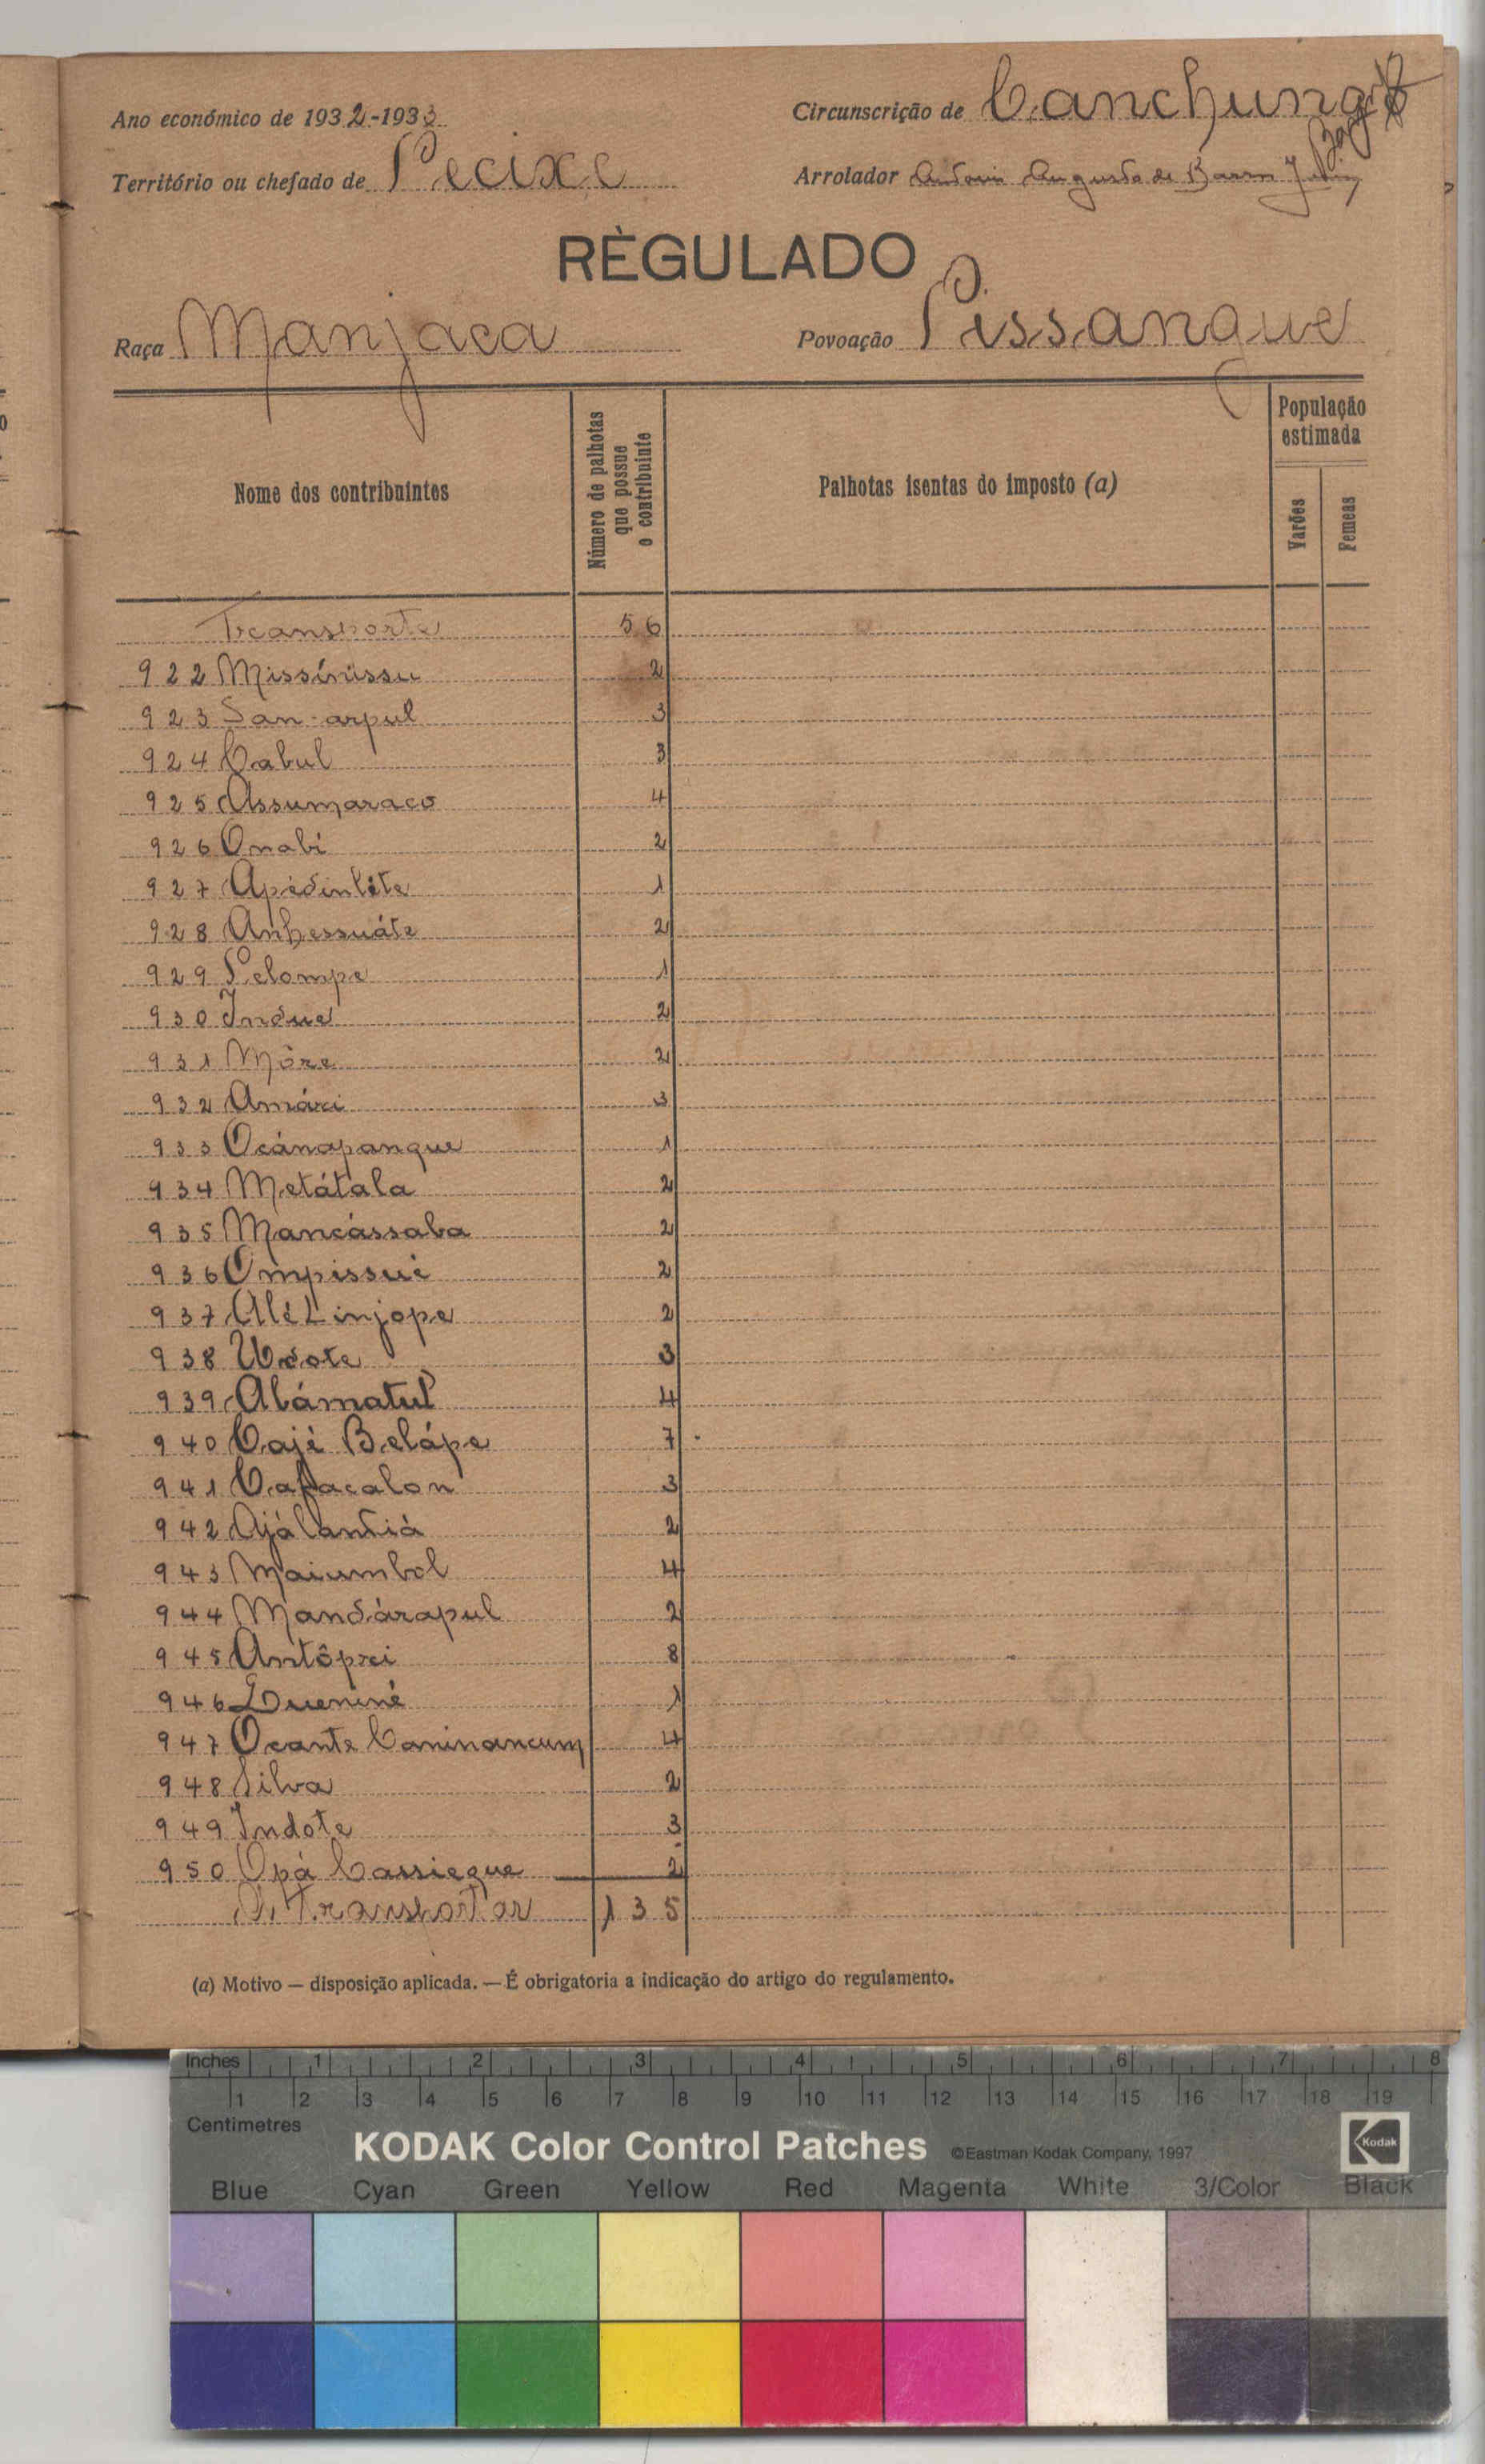 Ano económico de 1932-1933
Circunscrição de Canchungo
Território ou chefado de Pecixe
Arrolador Antonio Augusto de Barros
RÈGULADO
Raça Manjaca
Povoação Pissangue
Nome dos contribuintes
Número de palhotas que possue o contribuinte
Palhotas isentas do imposto (a)
População estimada
Varões
Femeas
Transporte 56
922 Missínissu 2
923 San-arpul 3
924 Cabul 3
925 Assumaraco 4
926 Onabi 2
927 Apédinléte 1
928 Anhessuáte 2
929 Pelompe 1
930 Indue 2
931 Môre 2
932 Amári 3
933 Ocánapangue 1
934 Metátala 2
935 Mancássaba 2
936 Ompissué 2
937 Alé Linjope 2
938 Udote 3
939 Alámatul 4
940 Cajé Belápe 7
941 Cafacalon 3
942 Ajálantiá 2
943 Maiumbol 4
944 Mandárapul 2
945 Antôprei 8
946 Dueniné 1
947 Ocante Caninancum 4
948 Silva 2
949 Indote 3
950 Opá Cassiegue 2
A Transportar 135
(a) Motivo — disposição aplicada. — É obrigatoria a indicação do artigo do regulamento.
Inches 1 2 3 4 5 6 7 8
1 2 3 4 5 6 7 8 9 10 11 12 13 14 15 16 17 18 19
Centimetres
KODAK Color Control Patches ©Eastman Kodak Company, 1997 Kodak
Blue Cyan Green Yellow Red Magenta White 3/Color Black